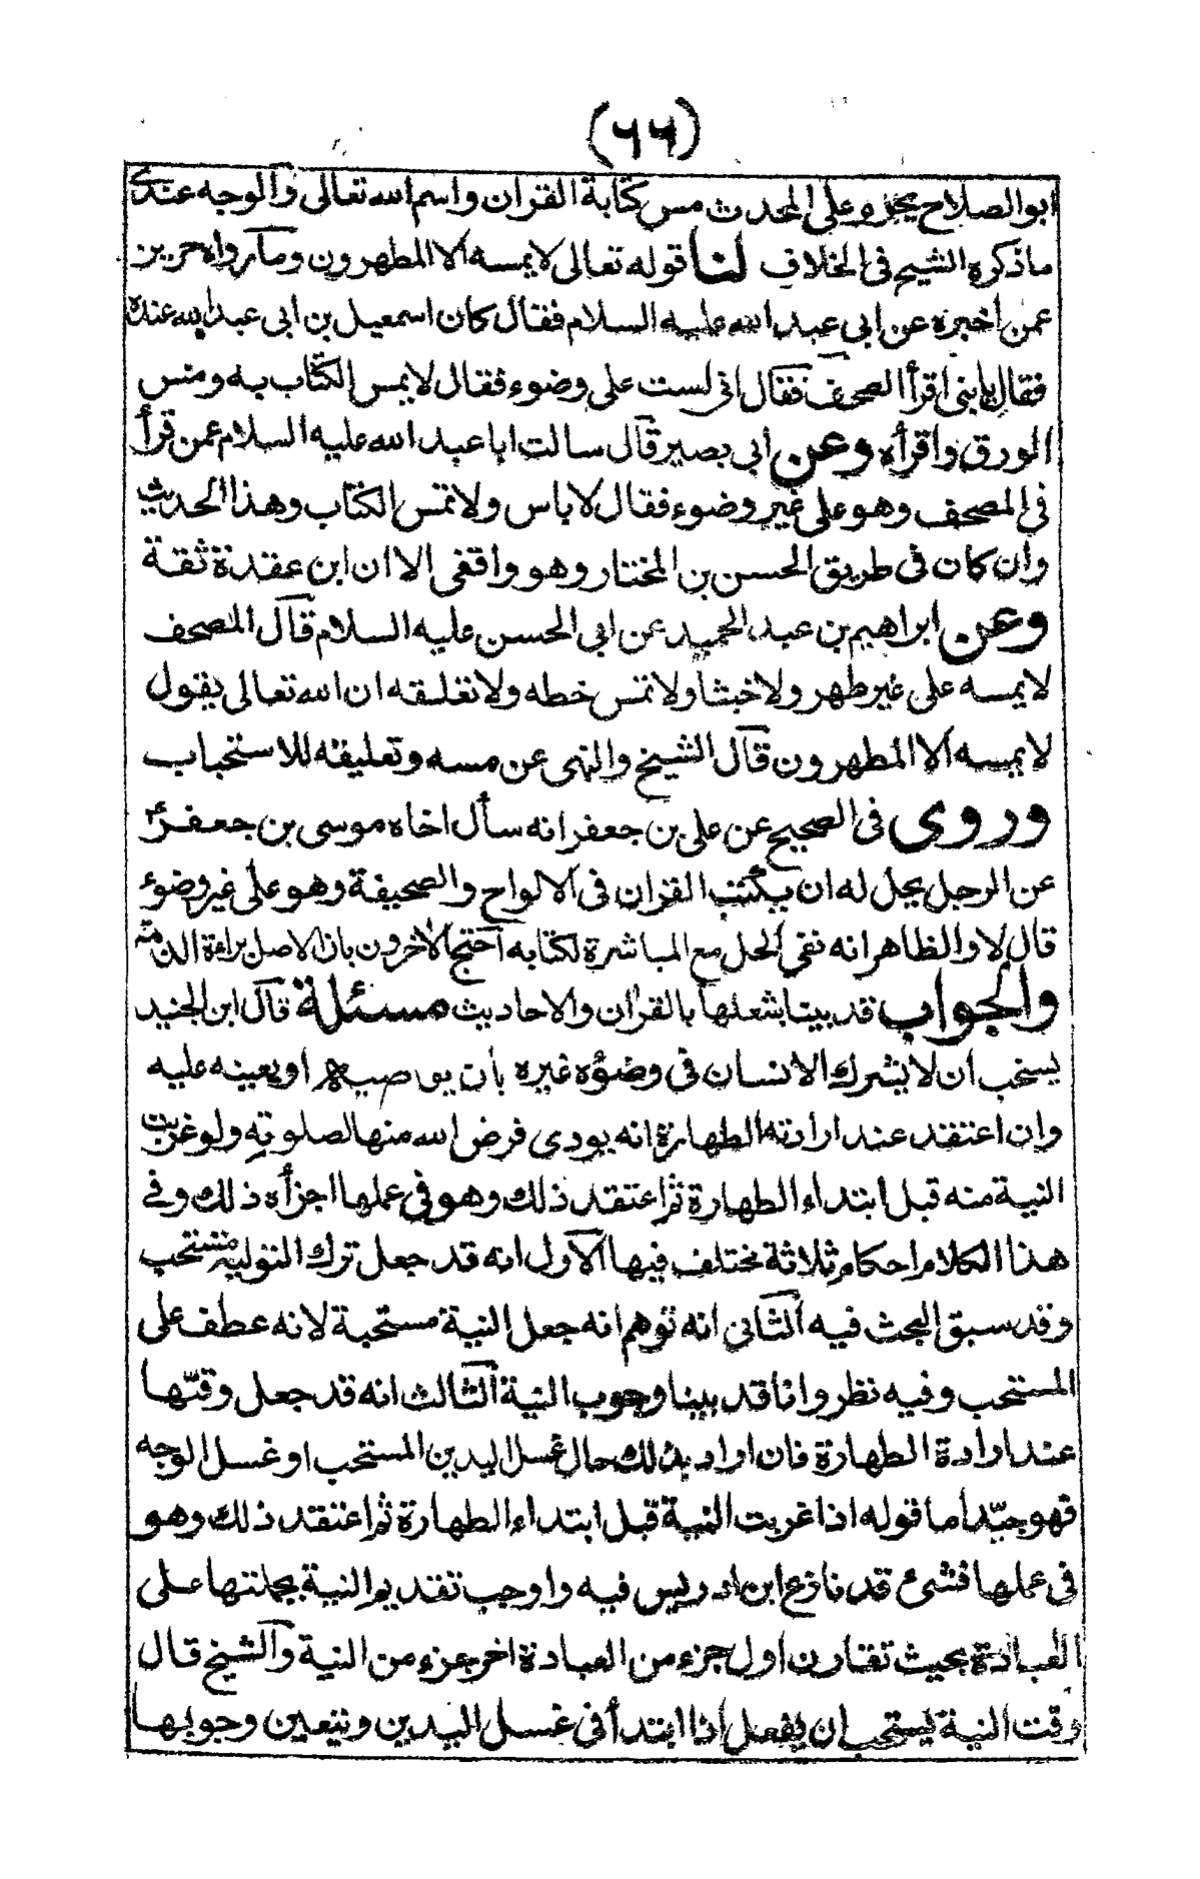 (٦٦)
ابو الصلاح يحرم على المحدث مس كتابة القران واسم الله تعالى والوجه عندى
ما ذكره الشيخ فى الخلاف لنا قوله تعالى لا يمسه الا المطهرون وما رواه حريز
عمن اخبره عن ابى عبد الله عليه السلام فقال كان اسمعيل بن ابى عبد الله عنده
فقال يا بنى اقرأ الصحف فقال انى لست على وضوء فقال لا يمس الكتاب به ومس
الورق واقرأه وعن ابى بصير قال سالت ابا عبد الله عليه السلام عمن قرأ
فى المصحف وهو على غير وضوء فقال لا باس ولا تمس الكتاب وهذا الحديث
وان كان فى طريق الحسن بن المختار وهو واقفى الا ان ابن عقدة ثقة
وعن ابراهيم بن عبد الحميد عن ابى الحسن عليه السلام قال المصحف
لا يمسه على غير طهر ولا خبثا ولا تمس خطه ولا تعلقه ان الله تعالى يقول
لا يمسه الا المطهرون قال الشيخ والنهى عن مسه وتعليقه للاستحباب
وروى فى الصحيح عن على بن جعفر انه سأل اخاه موسى بن جعفر
عن الرجل يحل له ان يكتب القران فى الالواح والصحيفة وهو على غير وضوء
قال لا والظاهر انه نفى الحل مع المباشرة لكتابه احتج الاخرون بان الاصل براءة الذمة
والجواب قد بينا شغلها بالقران والاحاديث مسئلة قال ابن الجنيد
يستحب ان لا يشرك الانسان فى وضؤه غيره بان يوضيه او يعينه عليه
وان اعتقد عند ارادته الطهارة انه يودى فرض الله منها لصلوته ولو غربت
النية منه قبل ابتداء الطهارة ثم اعتقد ذلك وهو فى عملها اجزأه ذلك وفى
هذا الكلام احكام ثلاثة نختلف فيها الاول انه قد جعل ترك التولية مستحب
وقد سبق البحث فيه الثانى انه توهم انه جعل النية مستحبة لانه عطف على
المستحب وفيه نظر وانا قد بينا وجوب النية الثالث انه قد جعل وقتها
عند ارادة الطهارة فان اراد بذلك حال غسل اليدين المستحب او غسل الوجه
فهو جيد اما قوله اذا غربت النية قبل ابتداء الطهارة ثم اعتقد ذلك وهو
فى عملها فشىء قد نازع ابن ادريس فيه واوجب تقديم النية بجملتها على
العبادة بحيث تقارن اول جزء من العبادة اخر جزء من النية والشيخ قال
وقت النية يستحب ان يفعل اذا ابتدأ فى غسل اليدين ويتعين وجوبها